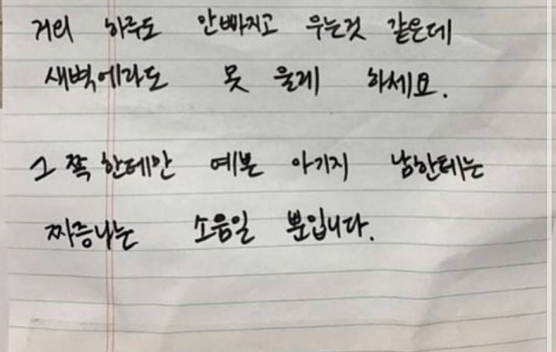 거의 하루도 안빠지고 우는것 같은데
새벽에라도 못 울레 하세요.
그 쪽 한테만 예쁜 아기지 남한테는
짜증나는 소음일 뿐입니다.